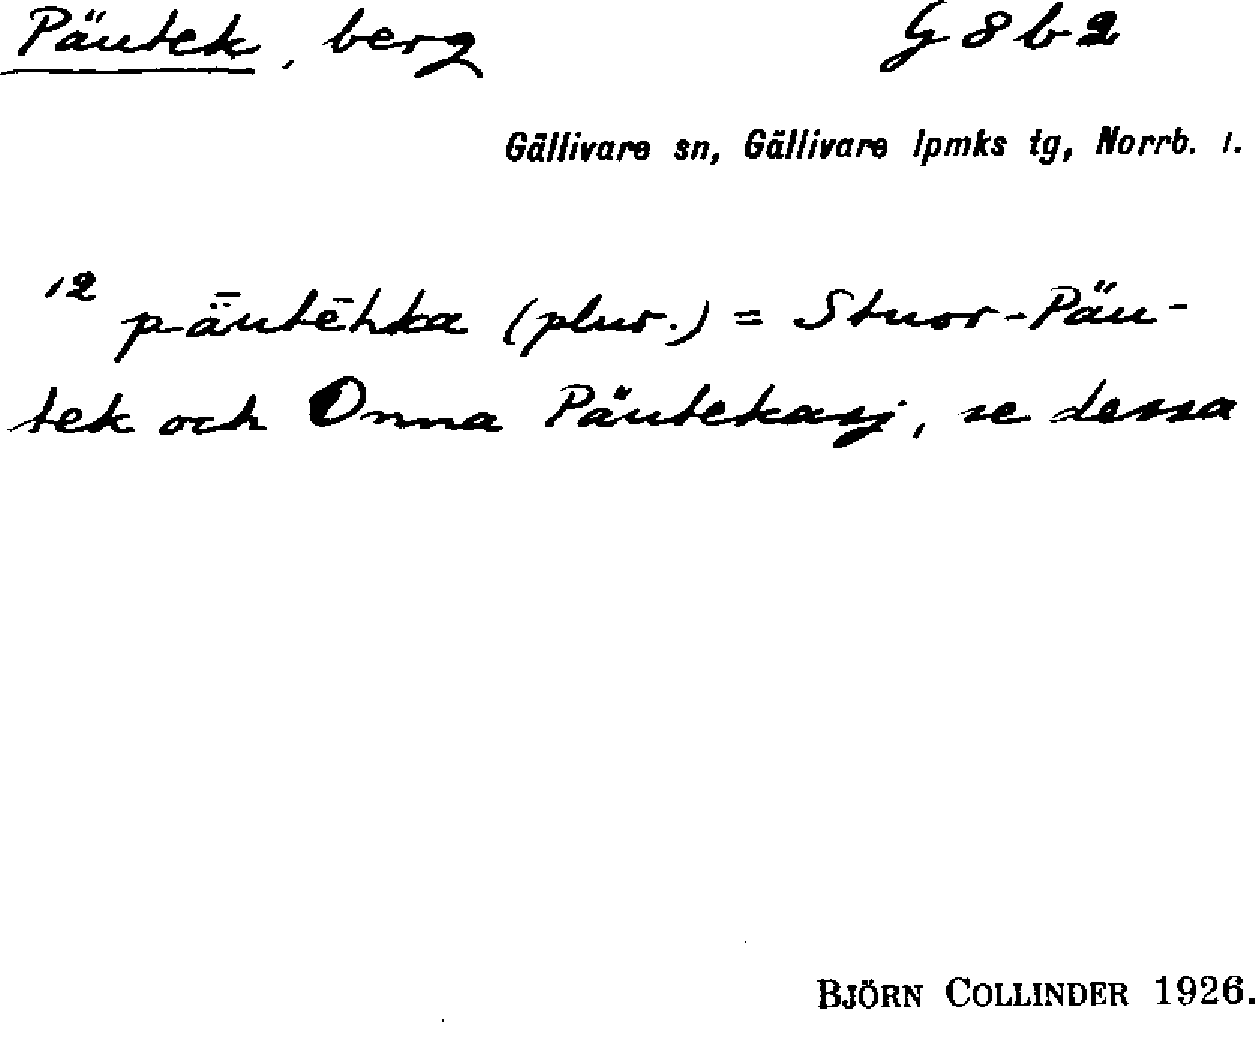 Päutek, berg G 8 b 2
Gällivare sn, Gällivare lpmks tg, Norrb. l.
12 pǟutēhka (plur.) = Stuor-Päu-
tek och Onna Päutekasj, se dessa
BJÖRN COLLINDER 1926.